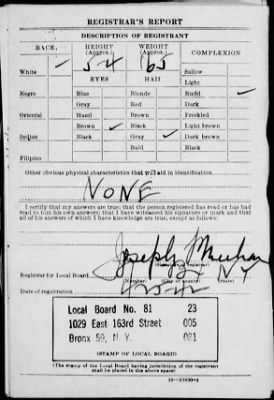 REGISTRAR'S REPORT
DESCRIPTION OF REGISTRANT
RACE HEIGHT (Approx.) WEIGHT (Approx.) COMPLEXION
White ✓ 5-4 165 Sallow
EYES HAIR Light
Negro Blue Blonde Ruddy ✓
Gray Red Dark
Oriental Hazel Brown Freckled
Brown ✓ Black Light brown
Indian Black Gray ✓ Dark brown
Bald Black
Filipino
Other obvious physical characteristics that will aid in identification
NONE
I certify that my answers are true; that the person registered has read or has had
read to him his own answers; that I have witnessed his signature or mark and that
all of his answers of which I have knowledge are true, except as follows:
Joseph Meehan
(Signature of registrar)
Registrar for Local Board 81 NY
(Number) (City or county) (State)
Date of registration
Local Board No. 81 23
1029 East 163rd Street 005
Bronx 59, N. Y. 081
(STAMP OF LOCAL BOARD)
(The stamp of the Local Board having jurisdiction of the registrant
shall be placed in the above space)